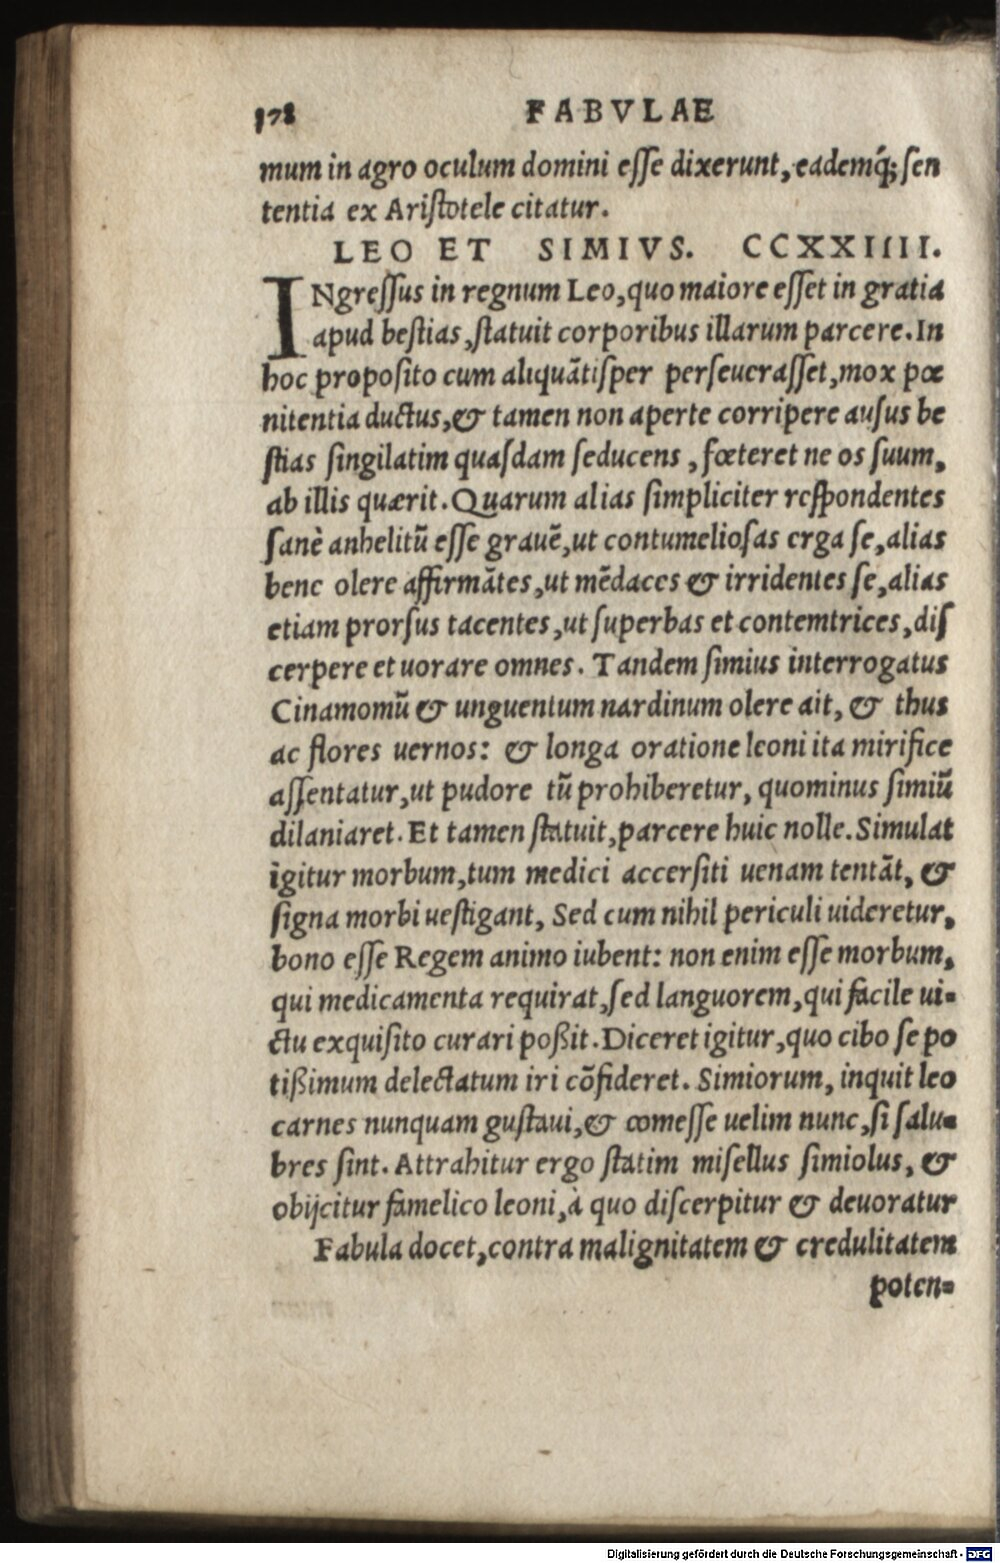 178 FABVLAE
mum in agro oculum domini eſſe dixerunt, eademq́; ſen
tentia ex Ariſtotele citatur.
LEO ET SIMIVS. CCXXIIII.
INgreſſus in regnum Leo, quo maiore eſſet in gratia
apud beſtias, ſtatuit corporibus illarum parcere. In
hoc propoſito cum aliquãtiſper perſeueraſſet, mox pœ
nitentia ductus, & tamen non aperte corripere auſus be
ſtias ſingilatim quaſdam ſeducens, fœteret ne os ſuum,
ab illis quærit. Quarum alias ſimpliciter reſpondentes
ſanè anhelitũ eſſe grauẽ, ut contumelioſas erga ſe, alias
bene olere affirmãtes, ut mẽdaces & irridentes ſe, alias
etiam prorſus tacentes, ut ſuperbas et contemtrices, diſ
cerpere et uorare omnes. Tandem ſimius interrogatus
Cinamomũ & unguentum nardinum olere ait, & thus
ac flores uernos: & longa oratione leoni ita mirifice
aſſentatur, ut pudore tũ prohiberetur, quominus ſimiũ
dilaniaret. Et tamen ſtatuit, parcere huic nolle. Simulat
igitur morbum, tum medici accerſiti uenam tentãt, &
ſigna morbi ueſtigant, Sed cum nihil periculi uideretur,
bono eſſe Regem animo iubent: non enim eſſe morbum,
qui medicamenta requirat, ſed languorem, qui facile ui-
ctu exquiſito curari poßit. Diceret igitur, quo cibo ſe po
tißimum delectatum iri cõfideret. Simiorum, inquit leo
carnes nunquam guſtaui, & comeſſe uelim nunc, ſi ſalu-
bres ſint. Attrahitur ergo ſtatim miſellus ſimiolus, &
obijcitur famelico leoni, à quo diſcerpitur & deuoratur
Fabula docet, contra malignitatem & credulitatem
poten-
Digitalisierung gefördert durch die Deutsche Forschungsgemeinschaft - DFG